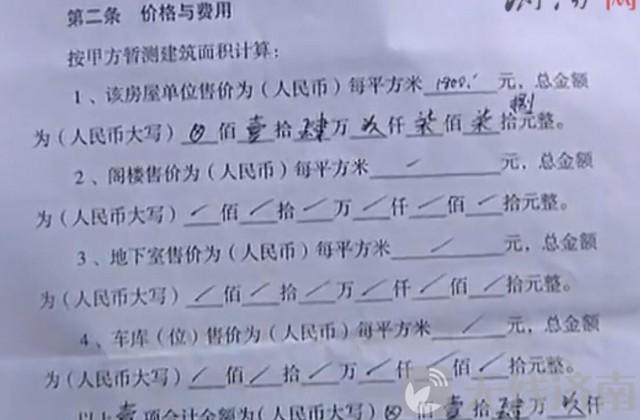 第二条 价格与费用
按甲方暂测建筑面积计算:
1、该房屋单位售价为(人民币)每平方米 1900. 元,总金额
为(人民币大写) 佰壹拾肆万玖仟柒佰柒拾捌元整。
2、阁楼售价为(人民币)每平方米 / 元,总金额
为(人民币大写)/佰/拾/万/仟/佰/拾元整。
3、地下室售价为(人民币)每平方米 / 元,总金额
为(人民币大写)/佰/拾/万/仟/佰/拾元整。
4、车库(位)售价为(人民币)每平方米 / 元,总金额
为(人民币大写)/佰/拾/万/仟/佰/拾元整。
以上壹项合计金额为(人民币大写) 佰壹拾肆万玖仟
无线济南